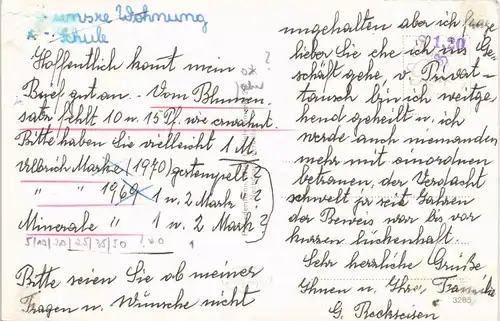 unsre Wohnung
Schule
Hoffentlich komt mein
Brief gut an. - Vom Blumen-
satz fehlt 10 u. 15 Pf. wie erwähnt.
Bitte haben Sie vielleicht 1 M
Ulbrich Marke (1970) gestempelt?
" " 1969 1 u. 2 Mark?
Minerale " 1 u. 2 Mark?
5/10/20/25/35/50 ? 1
Bitte seien Sie ob meiner
Fragen u. Wünsche nicht
ungehalten aber ich frage
lieber Sie ehe ich ins Ge-
schäft gehe, v. Privat-
tausch bin ich weitge-
hend geheilt u. ich
werde auch niemanden
mehr mit einordnen
betrauen, der Verdacht
schwelt ja seit Jahren
der Beweis war bis vor
kurzem lückenhaft.
Sehr herzliche Grüße
Ihnen u. Ihrer Familie
G.
1.20
3285